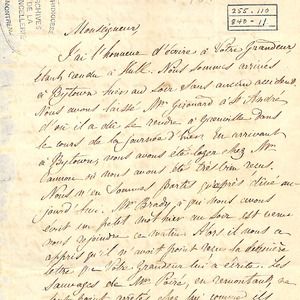 ARCHIVES
DE LA
CHANCELLERIE
MONTREAL
255.-110
840-11
Monseigneur
J'ai l'honneur d'écrire à Votre Grandeur
étant rendu à Hull. Nous sommes arrivés
à Bytown hier au soir sans aucun accident.
Nous avons laissé Mr. à St André
d'où il a dû se rendre à Grenville dans
le cours de la journée d'hier. en arrivant
à Bytown nous avons été loger chez Mr.
où nous avons été très bien reçus.
Nous n'en sommes partis qu'après dîné au-
jourd'hui. Mr Brady à qui nous avons
écrit un petit mot hier au soir est venu
nous rejoindre ce matin. Alors il nous a
appris qu'il n'avoit point reçu la dernière
lettre que Votre Grandeur lui a écrite. Les
sauvages de Mr. Poiré, en remontant, ne
sont point arrêtés chez lui comme ils